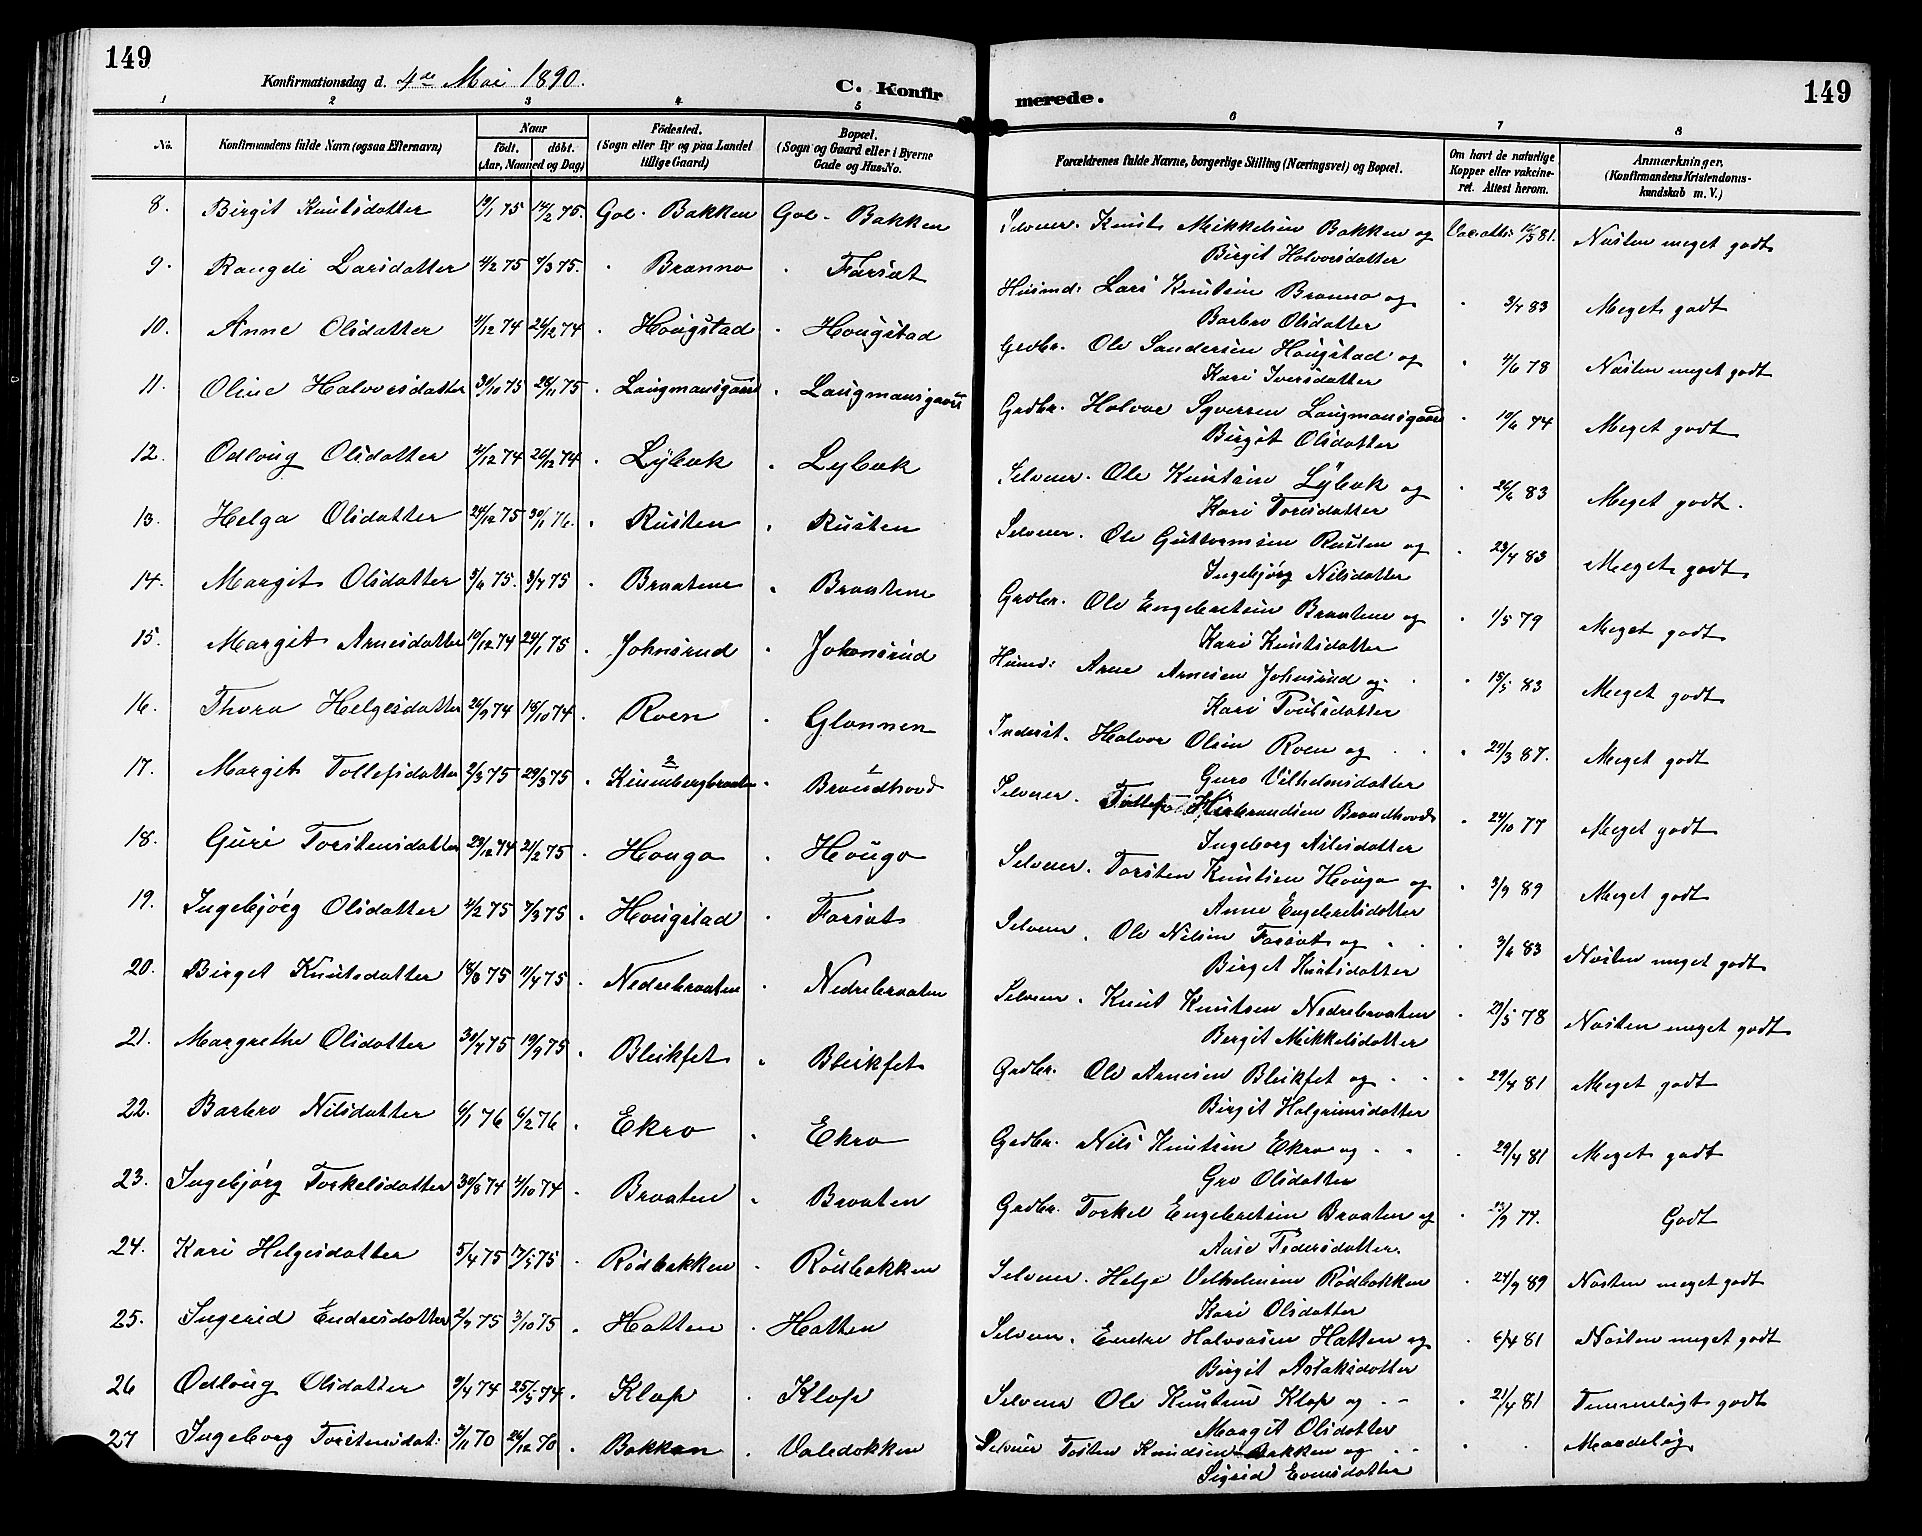 149
Konfirmationsdag d. 4de Mai 1890.
C. Konfir
merede.
149
1 2 3 4 5 6 7 8
No.
Konfirmandens fulde Navn (ogsaa Efternavn)
Naar
født. døbt.
(Aar, Maaned og Dag.)
Födested.
(Sogn eller By og paa Landet
tillige Gaard)
Bopæl.
(Sogn og Gaard eller i Byerne
Gade og Hus-No.
Forældrenes fulde Navne, borgerlige Stilling (Næringsvei) og Bopæl.
Om havt de naturlige
Kopper eller vakcine-
ret. Attest herom.
Anmærkninger.
(Konfirmandens Kristendoms-
kundskab m. V.)
8. Birgit Knutsdatter 19/1 75 14/2 75. Gol. Bakken Gol. Bakken Selveier. Knut Mikkelsen Bakken og Vac.att: /5 81. Næsten meget godt
Birgit Halvorsdatter
9. Rangdi Larsdatter 4/2 75 7/3 75. " Branno " Farsæt Husmd: Lars Knutsen Branno og " 3/4 83 Meget godt
Barbro Olsdatter
10. Anne Olsdatter 4/12 74 26/12 74 " Hougstad " Hougstad Grdbr. Ole Sandersen Hougstad og " 4/6 78 Næsten meget godt
Kari Iversdatter
11. Oline Halvorsdatter 31/10 75 28/11 75 " Laugmansgaard " Laugmansgaard Grdbr. Halvor Syversen Laugmansgaard " 10/6 74 Meget godt
Birgit Olsdatter
12. Odloug Olsdatter 4/12 74 26/12 74 " Lybæk " Lybæk Selveier. Ole Knutsen Lybæk og " 26/6 83 Meget godt.
Kari Toresdatter
13. Helga Olsdatter 24/12 75 30/1 76. " Rusten " Rusten Selveier. Ole Guttormsen Rusten og " 23/4 83 Meget godt.
Ingebjørg Nilsdatter
14. Margit Olsdatter 5/6 75. 3/4 75 " Braatene " Braatene Grdbr. Ole Engebretsen Braatene og " 1/5 79 Meget godt
Kari Knutsdatter
15. Margit Arnesdatter 10/12 74 24/1 75 " Johnsrud " Johnsrud Husmd: Arne Arnesen Johnsrud og " 18/5 83 Meget godt
Kari Poulsdatter
16. Thora Helgesdatter 26/9 74 18/10 74 " Roen " Glonnen Inderst. Halvor Olsen Roen og " 29/3 87. Meget godt
Guro Vilhelmsdatter
17. Margit Tollefsdatter 2/3 75 29/3 75 " Kinnebergbraaten " Brandhovd Selveier. Tollef Herbrandsen Brandhovd " 24/10 77 Meget godt
Ingeborg Nilsdatter
18. Guri Torstensdatter 29/12 74 21/2 75 " Hougo " Hougo Selveier. Torsten Knutsen Hougo og " 3/9 89 Meget godt
Anne Engebretsdatter
19. Ingebjörg Olsdatter 4/2 75 7/3 75 " Hougstad " Farsæt Selveier. Ole Nilsen Farsæt og " 3/6 83 Næsten meget godt
Birget Knutsdatter
20. Birget Knutsdatter 18/3 75 11/4 75 " Nedrebraaten " Nedrebraaten Selveier. Knut Knutsen Nedrebraaten " 21/5 78 Næsten meget godt
Bergit Mikkelsdatter
21. Margrethe Olsdatter 30/7 75 19/9 75 " Bleikfet " Bleikfet Grdbr. Ole Arnesen Bleikfet og " 29/4 81 Meget godt
Birgit Halgrimsdatter
22. Barbro Nilsdatter 6/1 76 6/2 76 " Ekro " Ekro Grdbr. Nils Knutsen Ekro og " 29/4 81 Meget godt
Gro Olsdatter
23. Ingebjørg Torkelsdatter 30/8 74 4/10 74 " Braaten " Braaten Grdbr. Torkel Engebretsen Braaten og " 23/9 77. Godt
Aase Pedersdatter.
24. Kari Helgesdatter 5/4 75 17/5 75 " Rödbakken " Rödbakken Selveier. Helge Velhelmsen Rödbakken " 24/9 89 Næsten meget godt
Kari Olsdatter
25. Ingerid Endresdatter 2/9 75 3/10 75 " Hatten " Hatten Selveier. Endre Halvorsen Hatten og " 6/4 81 Næsten meget godt
Birgit Aslaksdatter
26 Odloug Olsdatter 9/4 74 25/5 74 " Klop " Klop Selveier Ole Knutsen Klop og " 21/4 81 Temmeligt godt
Margit Olsdatter
27 Ingeborg Torstensdat: 3/11 70 26/12 70 " Bakken " Valedokken Selveier Tosten Knudsen Bakken og " " Maadelig
Sigrid Evensdatter